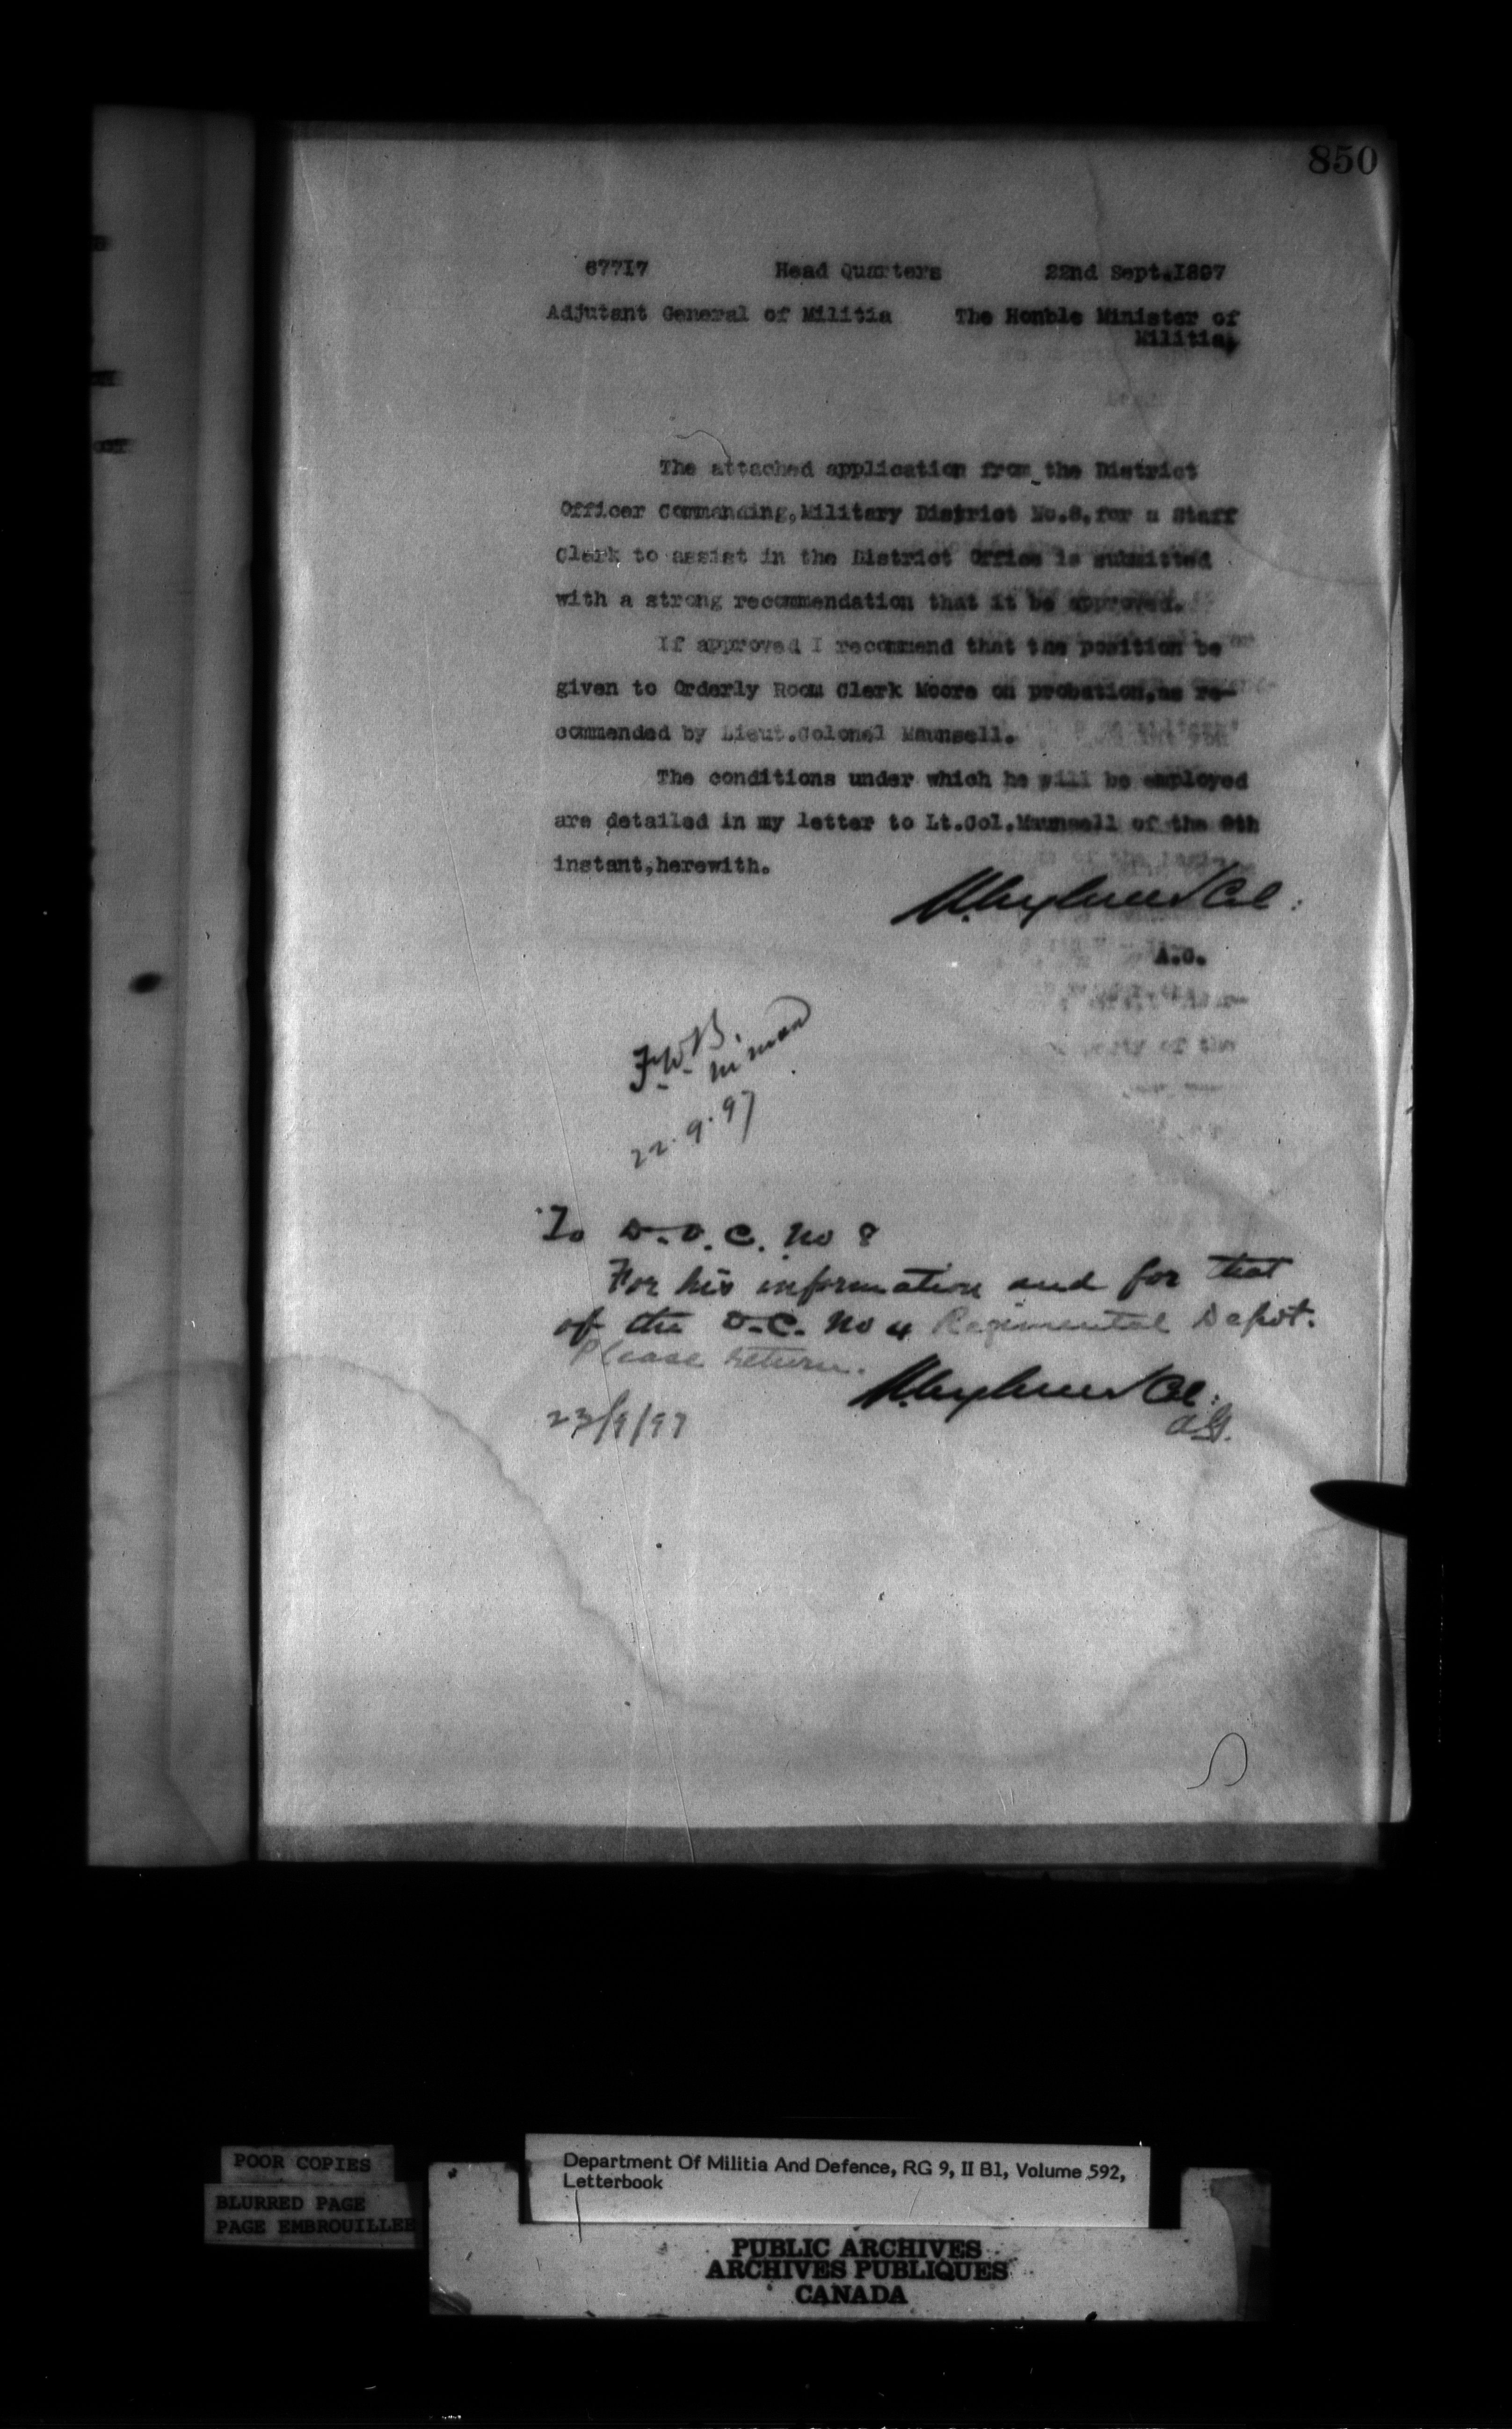 850
67717 Head Quarters 22nd Sept.1897
Adjutant General of Militia The Honble Minister of
Militia.
The attached application from the District
Officer Commanding, Military District No.8, for a Staff
Clerk to assist in the District Office is submitted
with a strong recommendation that it be approved.
If approved I recommend that the position be
given to Orderly Room Clerk Moore on probation, as re-
commended by Lieut.Colonel Maunsell.
The conditions under which he will be employed
are detailed in my letter to Lt.Col.Maunsell of the
instant, herewith.
Aylmer Col:
A.G.
F.W.B.
22.9.97
To D.O.C. No 8
For his information and for that
of the O.C. No 4 Regimental Depot.
Please return.
Aylmer Col:
AG.
23/9/97
POOR COPIES
BLURRED PAGE
PAGE EMBROUILLEE
Department Of Militia And Defence, RG 9, II B1, Volume 592,
Letterbook
PUBLIC ARCHIVES
ARCHIVES PUBLIQUES
CANADA